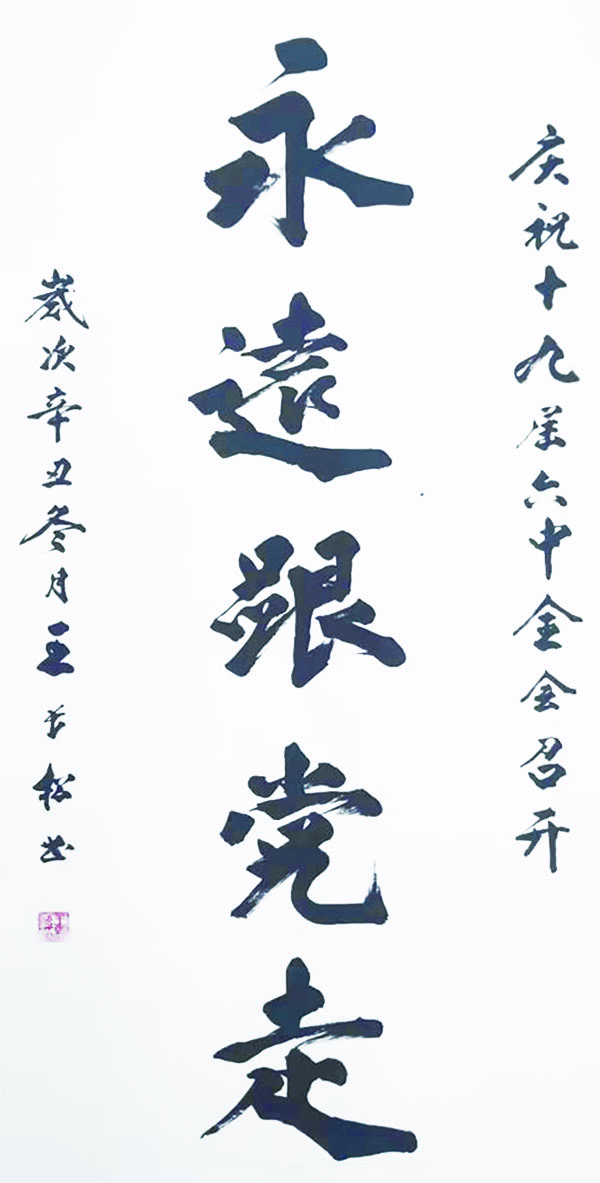 庆祝十九届六中全会召开
永遠跟党走
歲次辛丑冬月王长松书